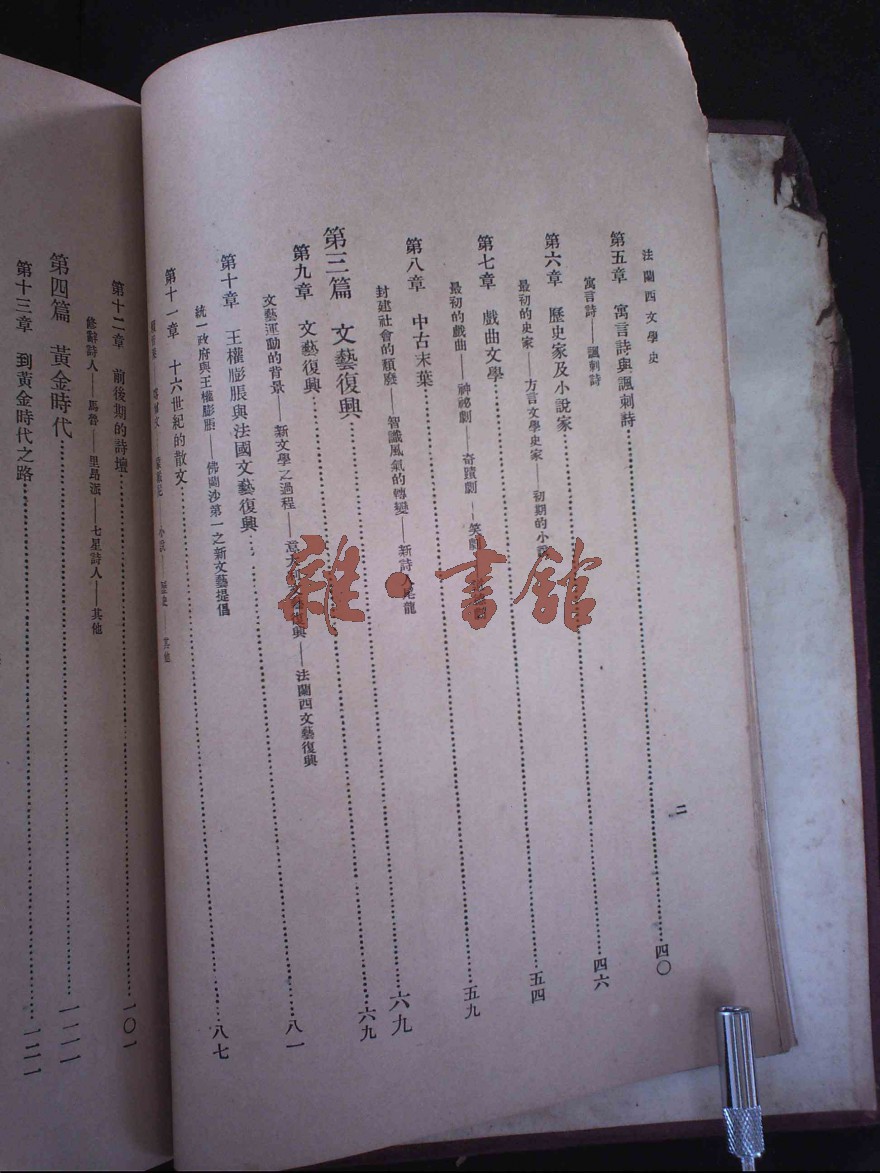 法蘭西文學史
二
第五章 寓言詩與諷刺詩……四〇
寓言詩——諷刺詩
第六章 歷史家及小說家……四六
最初的史家——方言文學史家——初期的小說
第七章 戲曲文學……五四
最初的戲曲——神祕劇——奇蹟劇——笑劇
第八章 中古末葉……五九
封建社會的頹廢——智識風氣的轉變——新詩人 龍
第三篇 文藝復興……六九
第九章 文藝復興……六九
文藝運動的背景——新文學之過程——意大利文藝復興——法蘭西文藝復興
第十章 王權膨脹與法國文藝復興……八一
統一政府與王權膨脹——佛蘭沙第一之新文藝提倡
第十一章 十六世紀的散文……八七
小說——歷史——其他
第十二章 前後期的詩壇……一〇一
修辭詩人——馬魯——里昂派——七星詩人——其他
第四篇 黃金時代……一二一
第十三章 到黃金時代之路……一二一
雜·書館